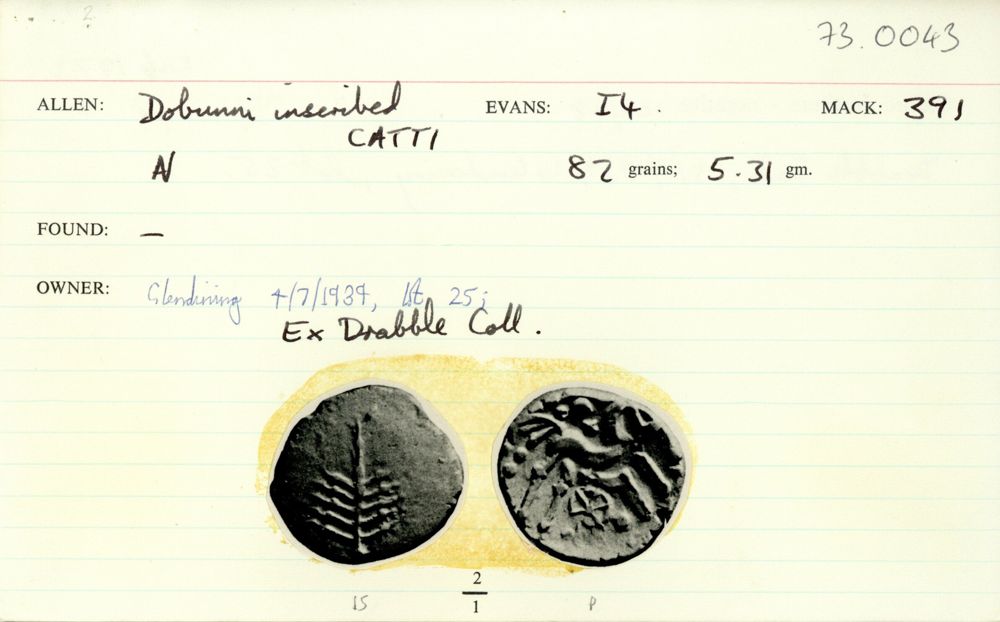 73.0043
ALLEN: Dobunni inscribed EVANS: I4. MACK: 391
CATTI
N 82 grains; 5.31 gm.
FOUND: —
OWNER: Glendining 4/7/1939, lot 25;
Ex Drabble Coll.
2
1
15 P